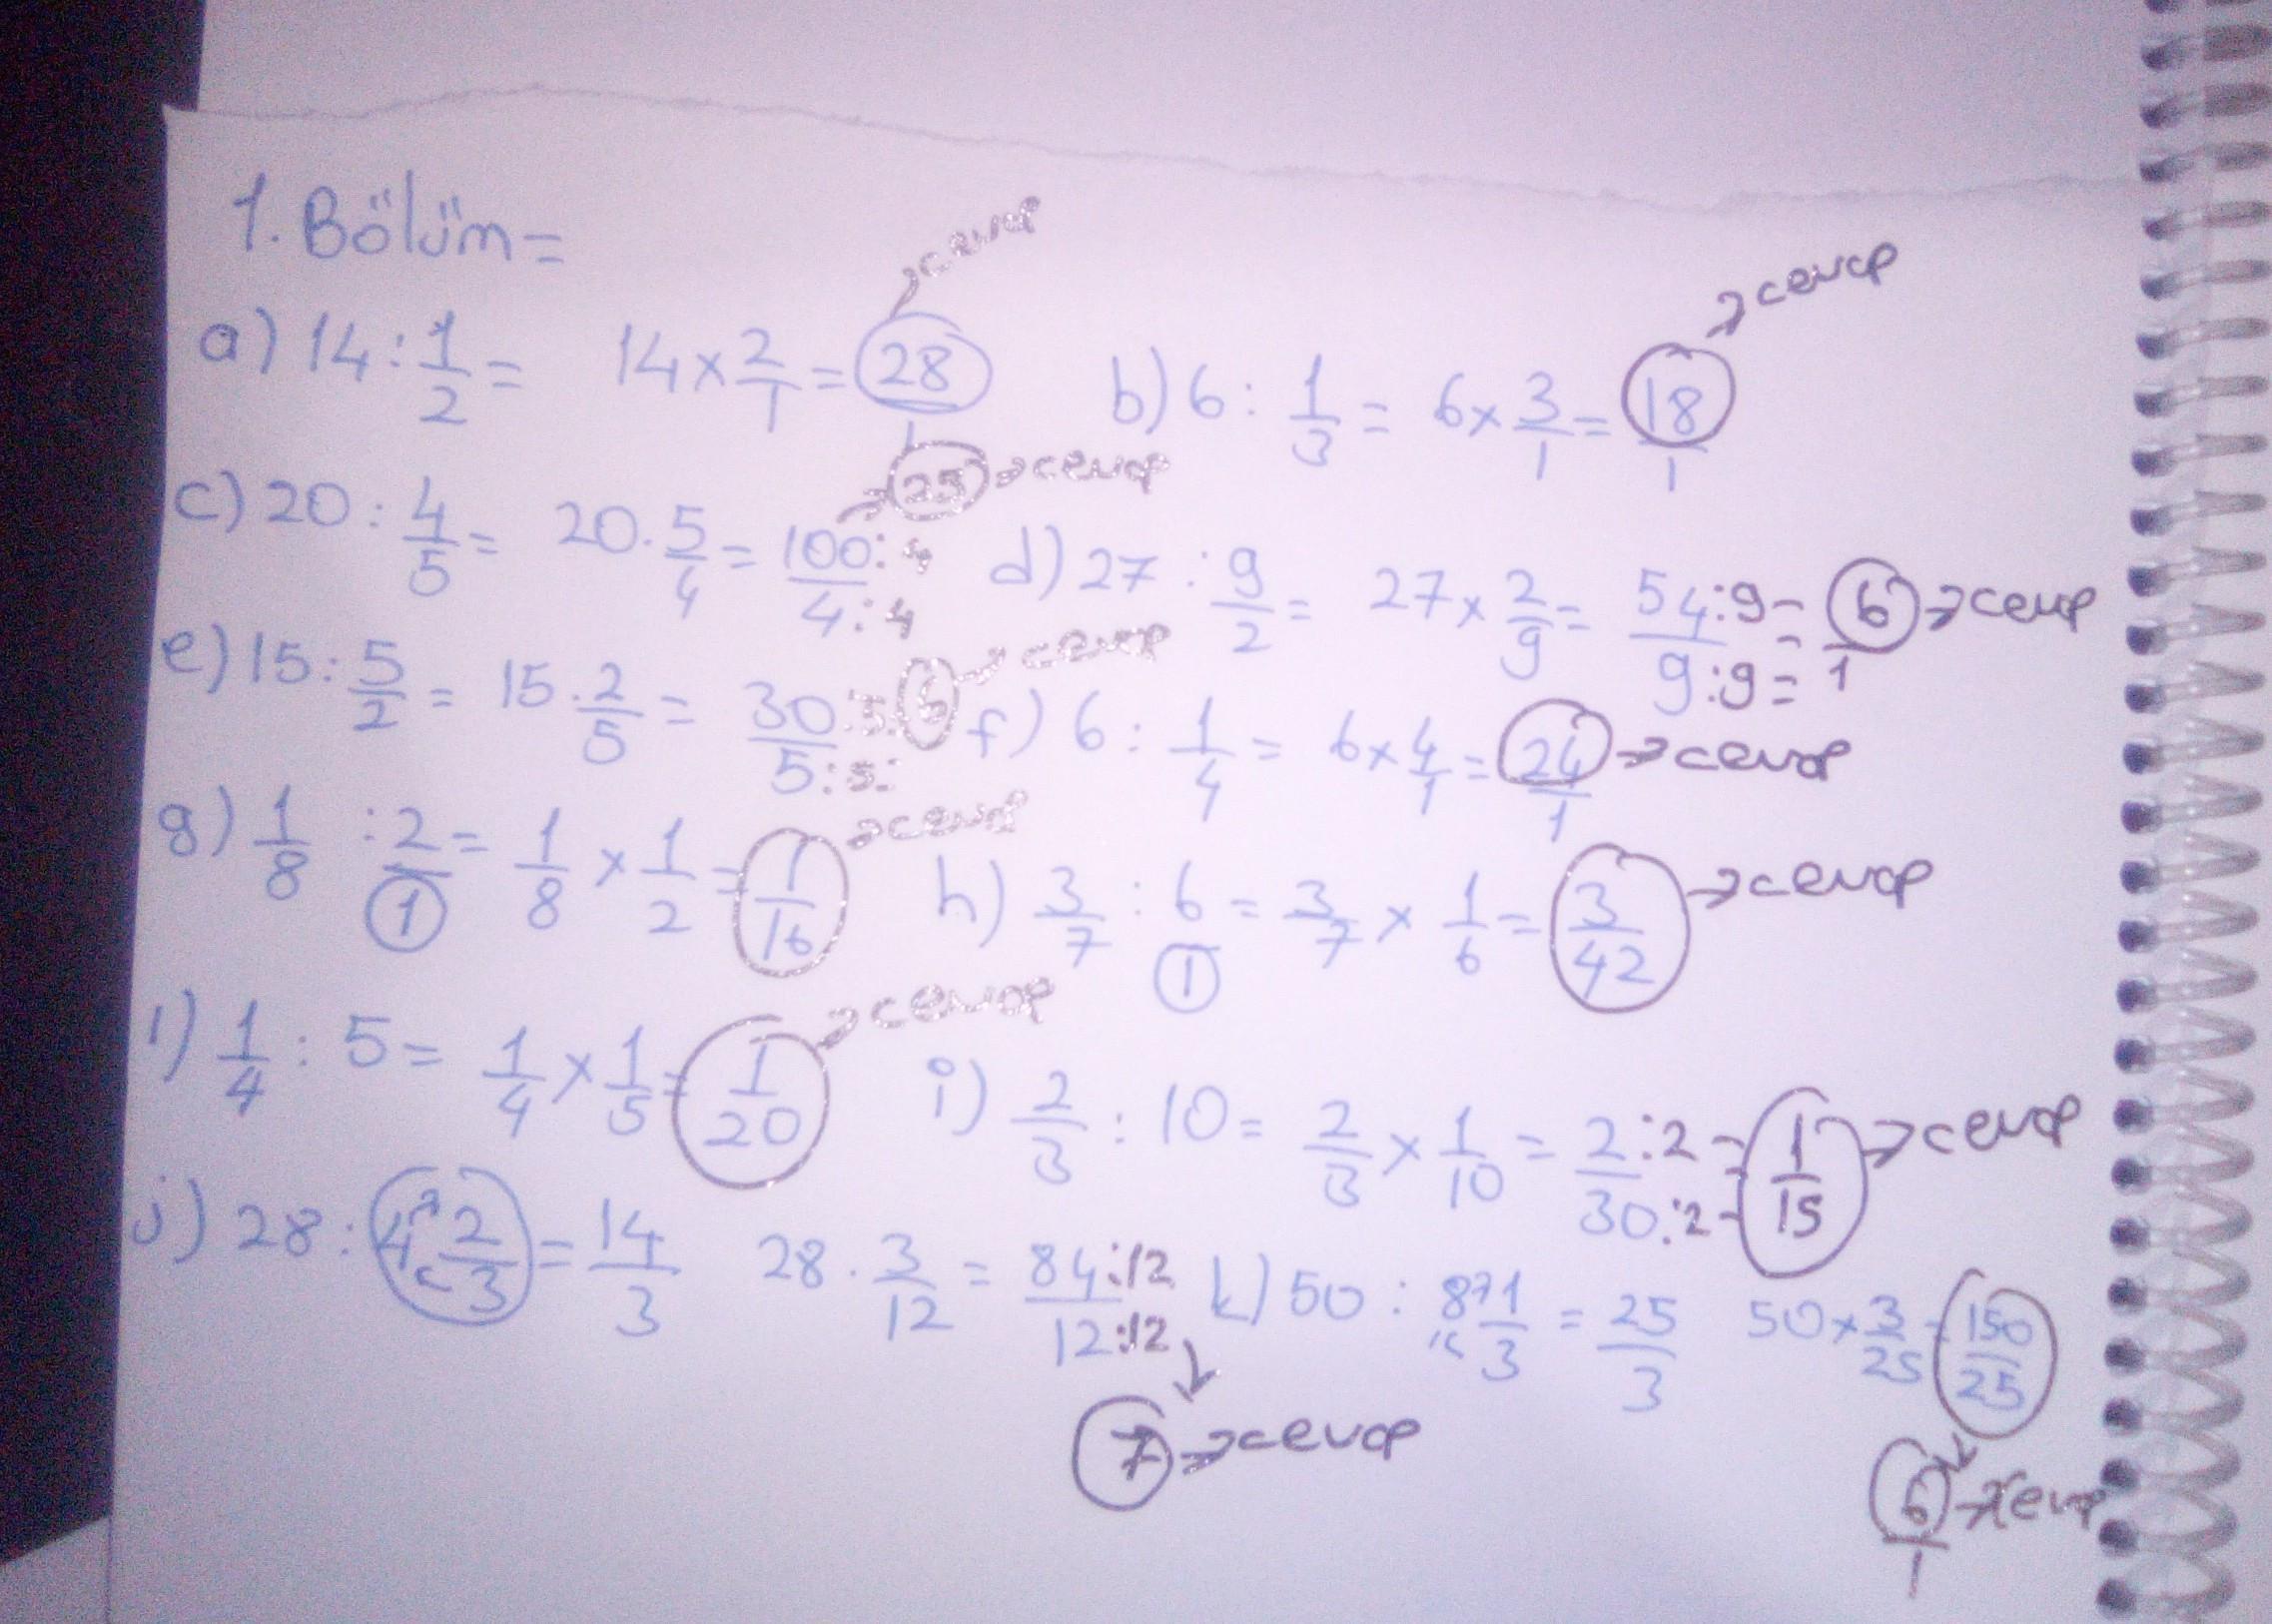 1. Bölüm=
a) 14 : 1/2 = 14 x 2/1 = 28/1 → cevap
b) 6 : 1/3 = 6 x 3/1 = 18/1 → cevap
c) 20 : 4/5 = 20 . 5/4 = 100:4/4:4 → 25 → cevap
d) 27 : 9/2 = 27 x 2/9 = 54:9/9:9 = 6/1 → cevap
e) 15 : 5/2 = 15 . 2/5 = 30:5/5:5 = 6 → cevap
f) 6 : 1/4 = 6 x 4/1 = 24/1 → cevap
g) 1/8 : 2/1 = 1/8 x 1/2 = 1/16 → cevap
h) 3/7 : 6/1 = 3/7 x 1/6 = 3/42 → cevap
ı) 1/4 : 5 = 1/4 x 1/5 = 1/20 → cevap
i) 2/3 : 10 = 2/3 x 1/10 = 2:2/30:2 = 1/15 → cevap
j) 28 : 4 2/3 = 14/3 28 . 3/12 = 84:12/12:12 → 7 → cevap
k) 50 : 8 1/3 = 25/3 50 x 3/25 = 150/25 → 6/1 → cevap